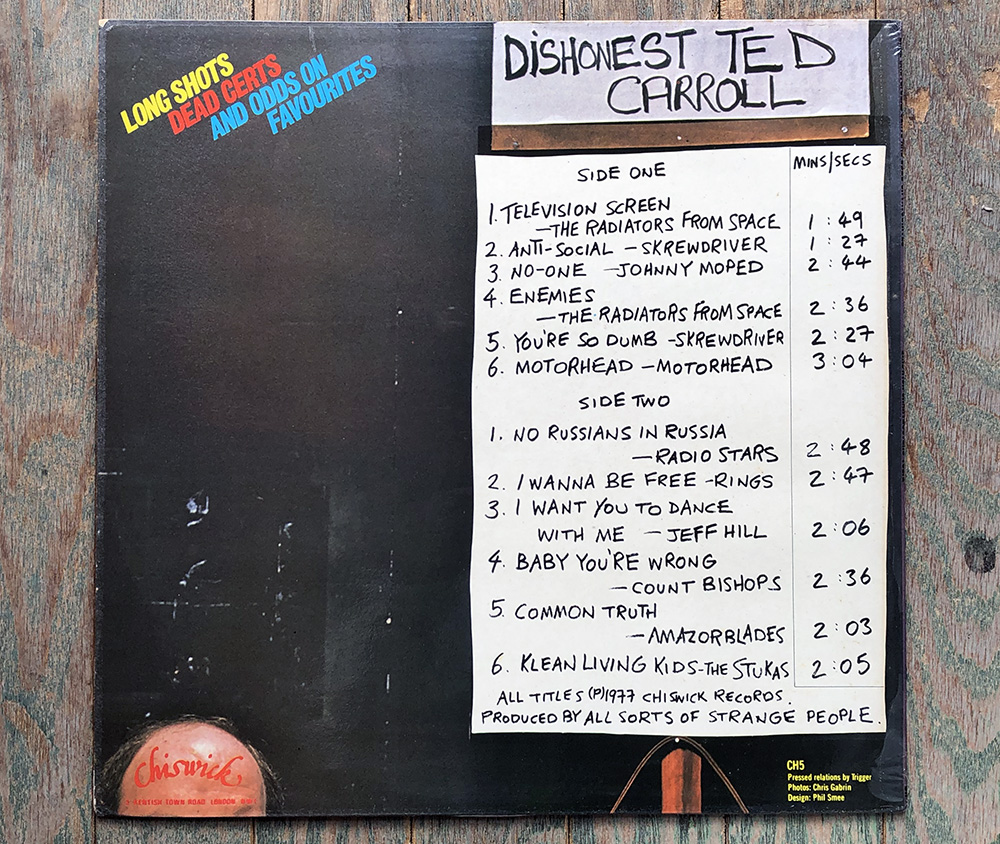 LONG SHOTS
DEAD CERTS
AND ODDS ON
FAVOURITES
DISHONEST TED
CARROLL
MINS/SECS
SIDE ONE
1. TELEVISION SCREEN
—THE RADIATORS FROM SPACE 1:49
2. ANTI-SOCIAL — SKREWDRIVER 1:27
3. NO-ONE — JOHNNY MOPED 2:44
4. ENEMIES
—THE RADIATORS FROM SPACE 2:36
5. YOU'RE SO DUMB - SKREWDRIVER 2:27
6. MOTORHEAD — MOTORHEAD 3:04
SIDE TWO
1. NO RUSSIANS IN RUSSIA
—RADIO STARS 2:48
2. I WANNA BE FREE - RINGS 2:47
3. I WANT YOU TO DANCE
WITH ME — JEFF HILL 2:06
4. BABY YOU'RE WRONG
—COUNT BISHOPS 2:36
5. COMMON TRUTH
—AMAZORBLADES 2:03
6. KLEAN LIVING KIDS - THE STUKAS 2:05
ALL TITLES (P) 1977 CHISWICK RECORDS.
PRODUCED BY ALL SORTS OF STRANGE PEOPLE.
Chiswick
KENTISH TOWN ROAD LONDON
CH5
Pressed relations by Trigger
Photos: Chris Gabrin
Design: Phil Smee